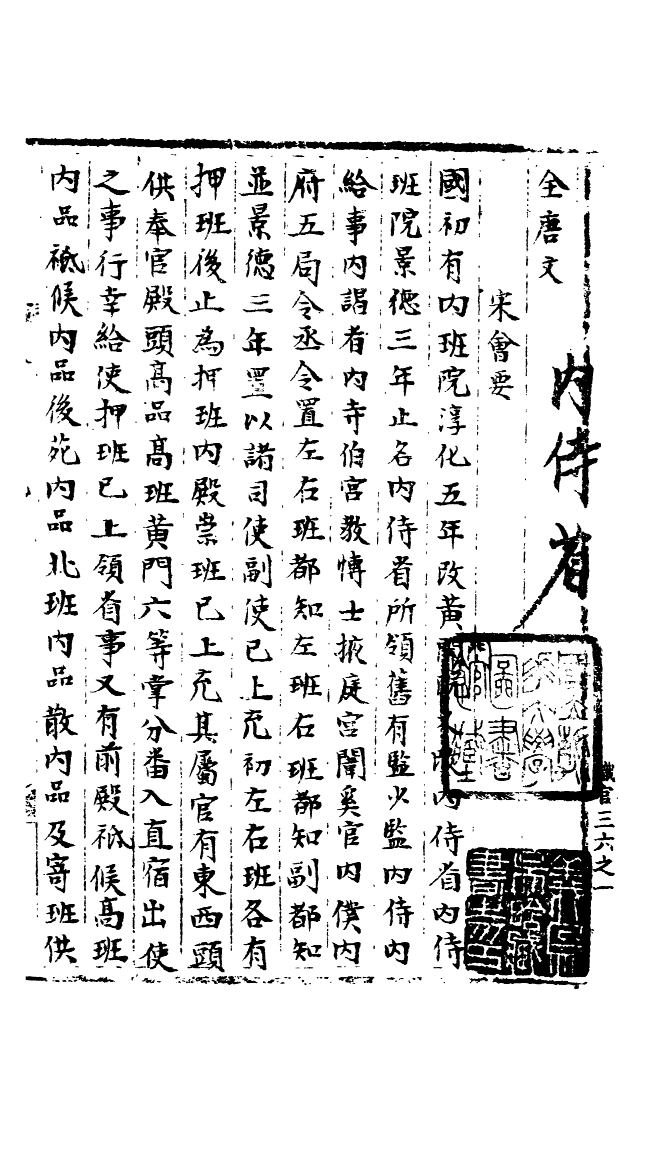 全唐文
內侍省
宋會要
國初有內班院淳化五年改黃門院又改內侍省內侍
班院景德三年止名內侍省所領舊有監少監內侍內
給事內謁者內寺伯宮教博士掖庭宮闈奚官內僕內
府五局令丞令置左右班都知左班右班都知副都知
並景德三年置以諸司使副使已上充初左右班各有
押班後止為押班內殿崇班已上充其屬官有東西頭
供奉官殿頭高品高班黃門六等掌分番入直宿出使
之事行幸給使押班已上領省事又有前殿祗候高班
內品祗候內品後苑內品北班內品散內品及寄班供
職官三六之一